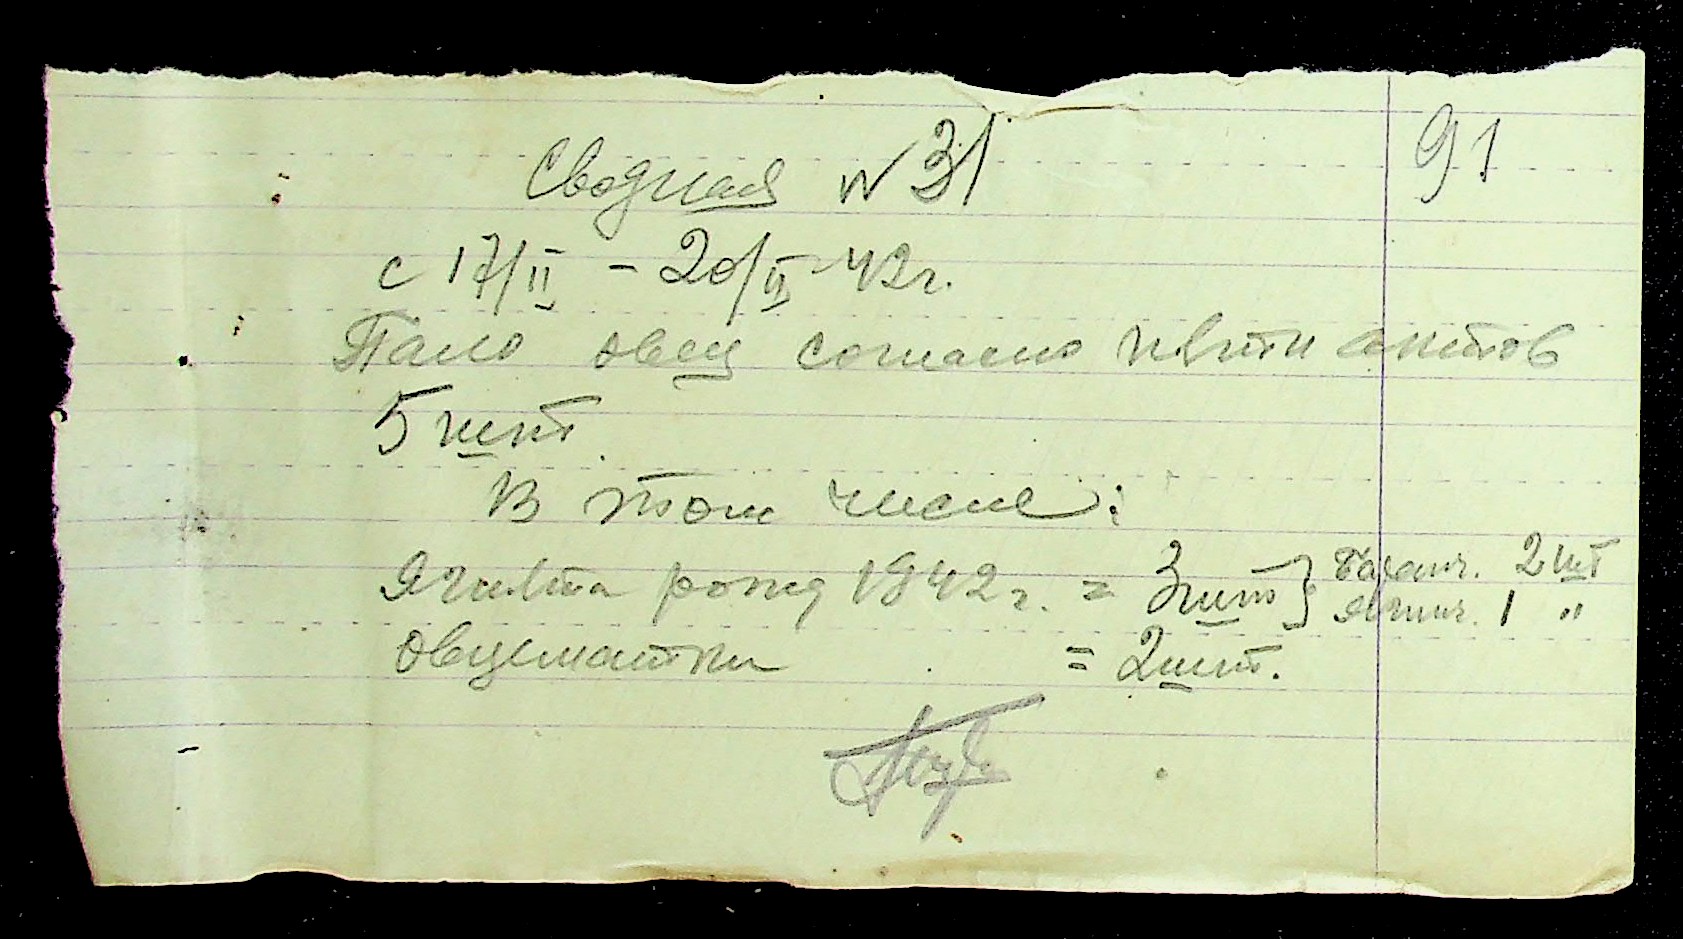 91
Сводная N 31
с 17/II – 20/II 42г.
Пало овец согласно пяти актов
5 шт.
В том числе:
Ягнята рожд 1942 г. = 3 шт } баранч. 2 шт
ярочк. 1 "
овцематки = 2 шт.